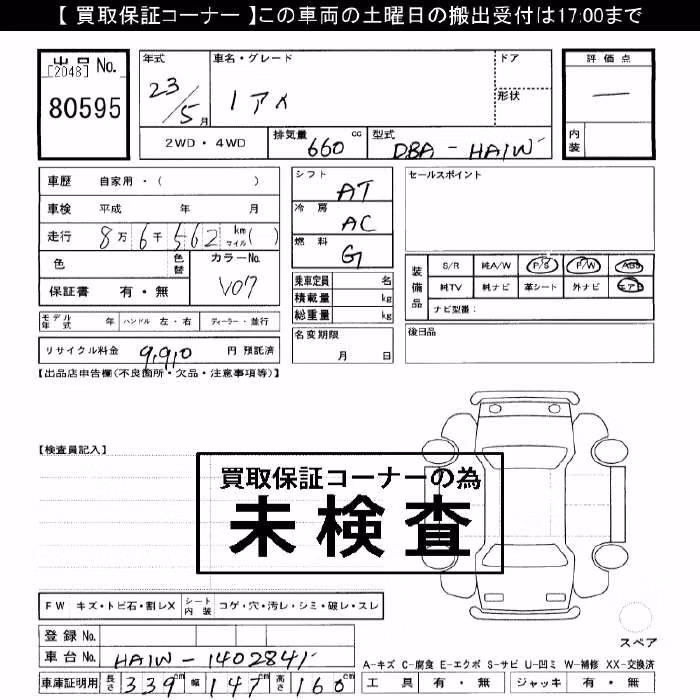 【 買取保証コーナー 】この車両の土曜日の搬出受付は17:00まで
出品 No.
[2048]
80595
年式
23/5 月
車名・グレード
ドア
形状
評価点
―
内装
2WD・4WD
排気量 660 cc
型式 DBA - HA1W
車歴 自家用・( )
車検 平成 年 月
走行 8万 6千 562 km マイル ( )
色 色替 カラーNo. V07
保証書 有・無
モデル年式 年 ハンドル 左・右 ディーラー・並行
リサイクル料金 9,910 円 預託済
シフト AT
冷房 AC
燃料 G
乗車定員 名
積載量 kg
総重量 kg
名変期限
月 日
セールスポイント
装備品
S/R 純A/W P/S P/W ABS
純TV 純ナビ 革シート 外ナビ エアB
ナビ型番:
後日品
【出品店申告欄(不良箇所・欠品・注意事項等)】
【検査員記入】
買取保証コーナーの為
未検査
FW キズ・トビ石・割レX シート内装 コゲ・穴・汚レ・シミ・破レ・スレ
登録 No.
車台 No. HA1W - 1402841
車庫証明用 長さ 339 cm 幅 147 cm 高さ 160 cm
スペア
A-キズ C-腐食 E-エクボ S-サビ U-凹ミ W-補修 XX-交換済
工具 有・無 ジャッキ 有・無